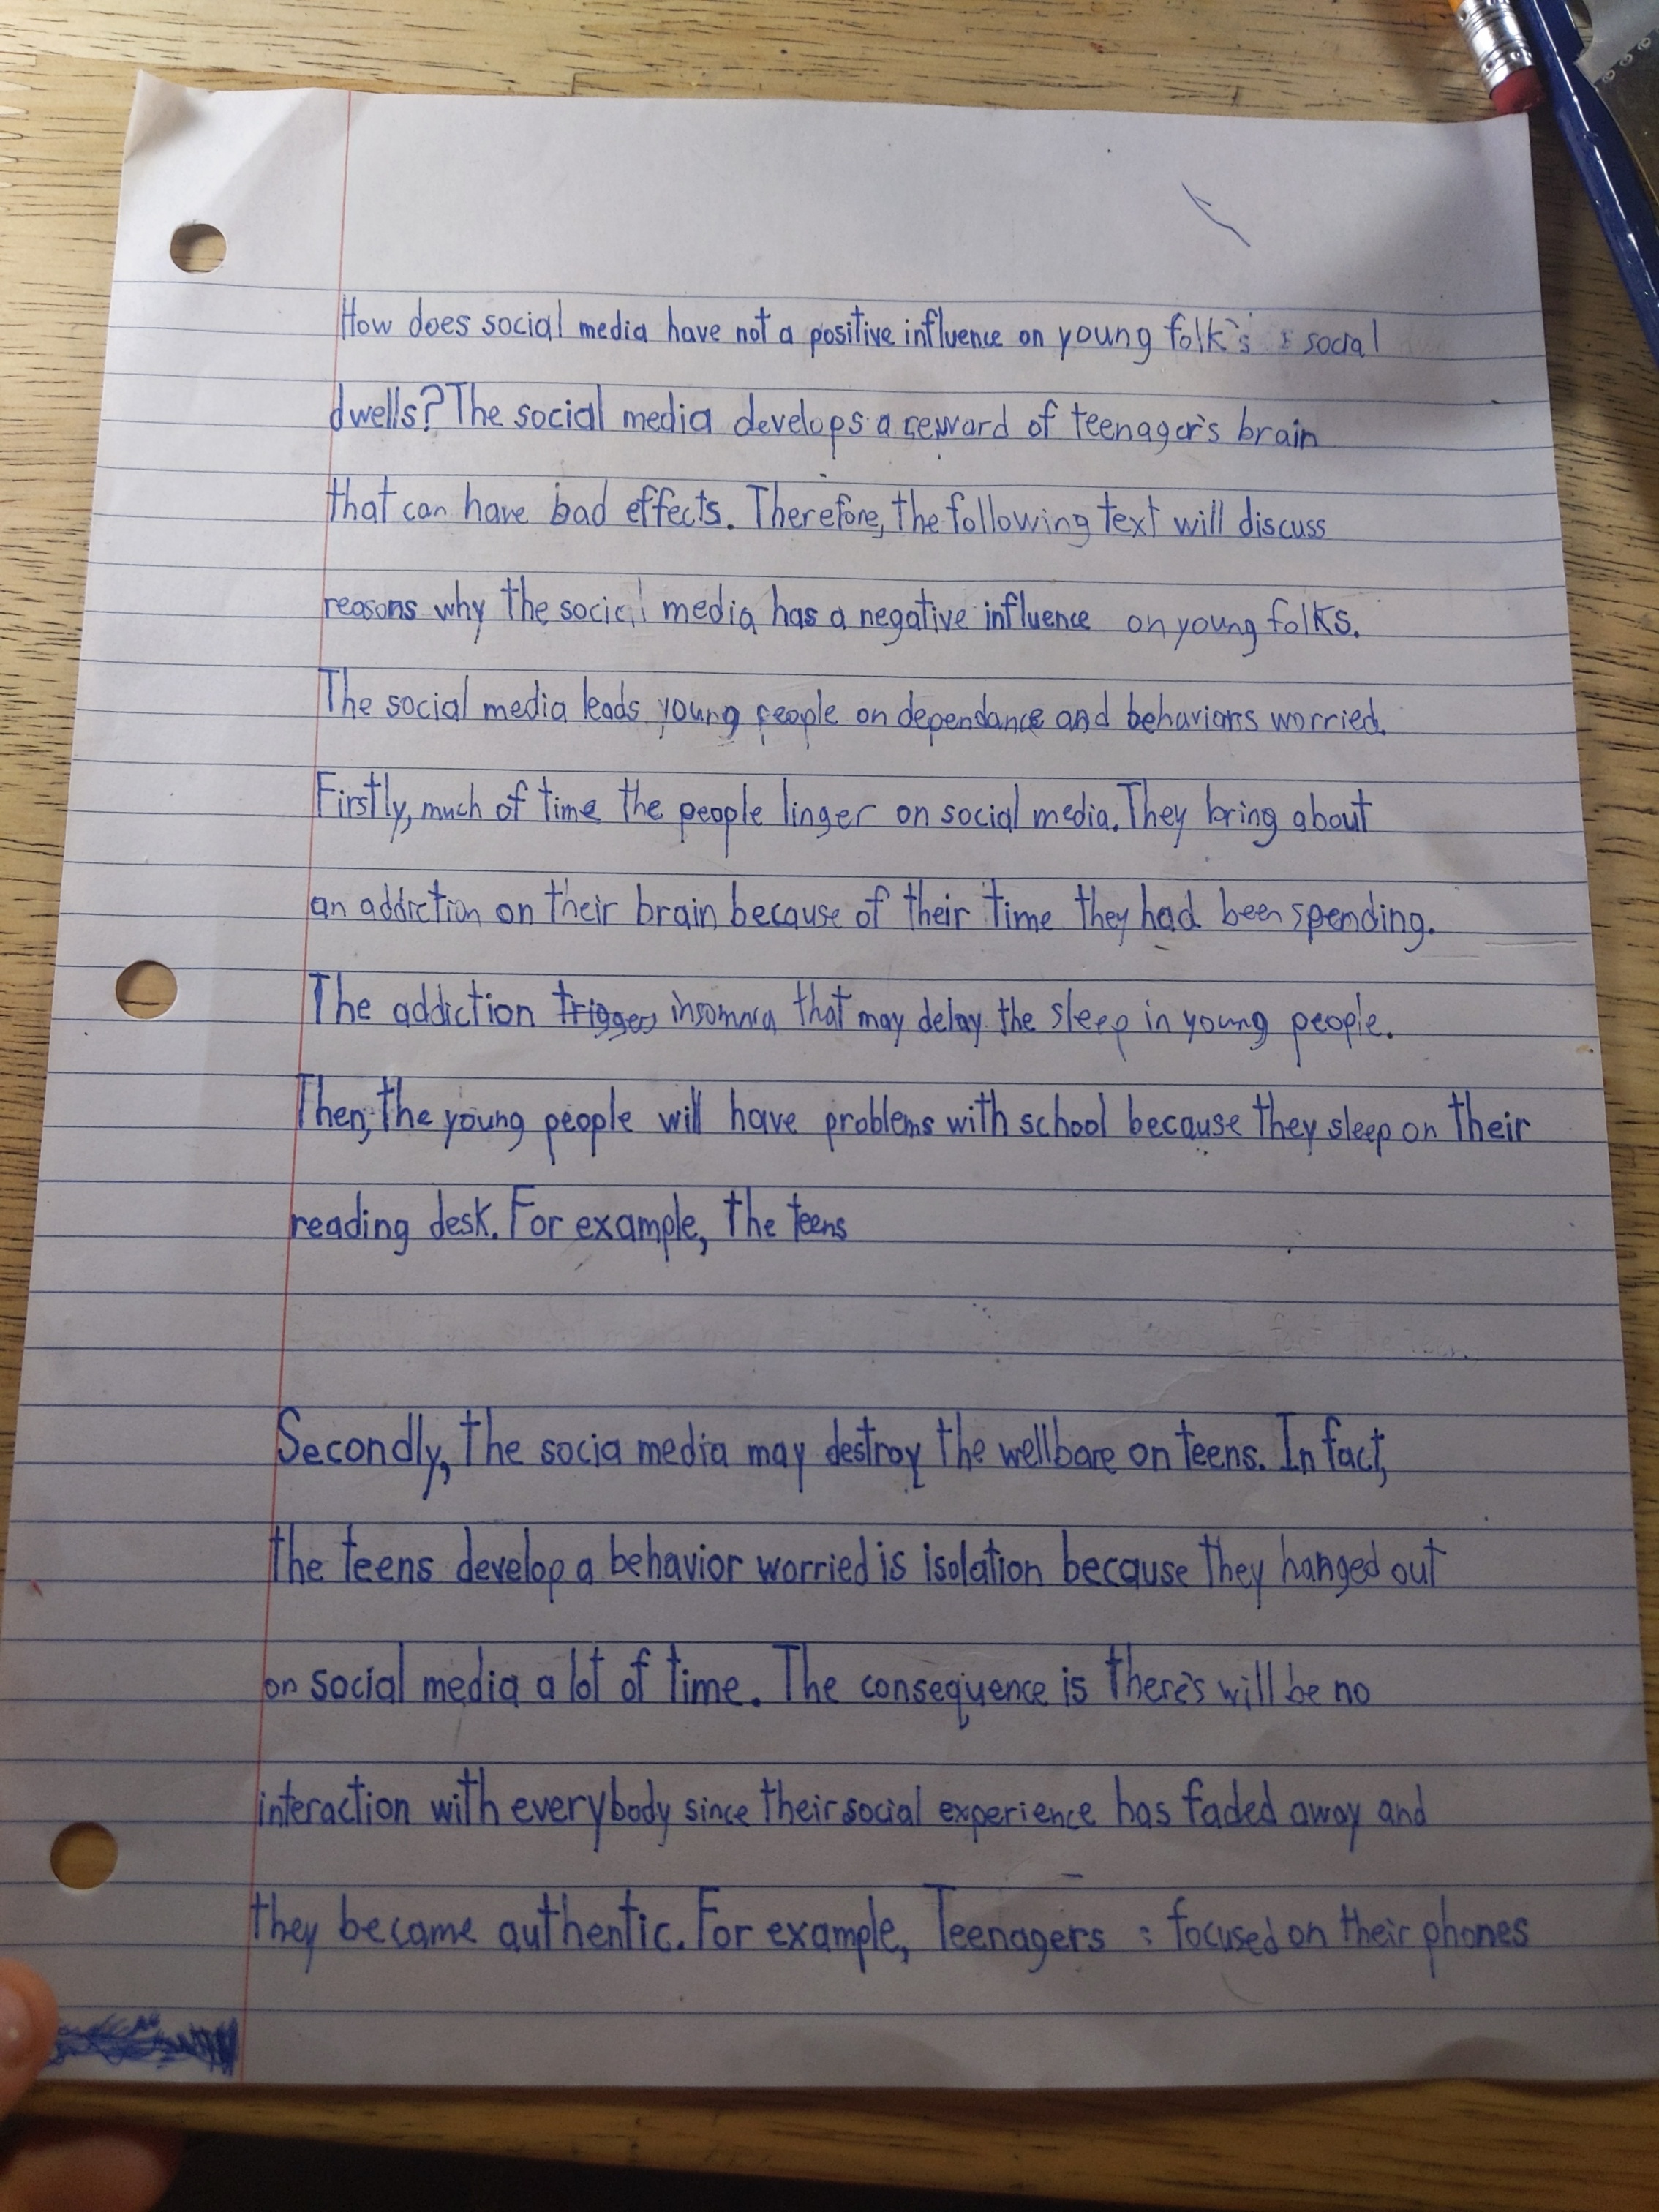 How does social media have not a positive influence on young folk's social
dwells? The social media develops a reward of teenager's brain
that can have bad effects. Therefore, the following text will discuss
reasons why the social media has a negative influence on young folks.
The social media leads young people on dependance and behaviors worried.
Firstly, much of time the people linger on social media. They bring about
an addiction on their brain because of their time they had been spending.
The addiction triggers insomnia that may delay the sleep in young people.
Then, the young people will have problems with school because they sleep on their
reading desk. For example, the teens
Secondly, the socia media may destroy the wellbare on teens. In fact,
the teens develop a behavior worried is isolation because they hanged out
on social media a lot of time. The consequence is there's will be no
interaction with everybody since their social experience has faded away and
they became authentic. For example, Teenagers focused on their phones